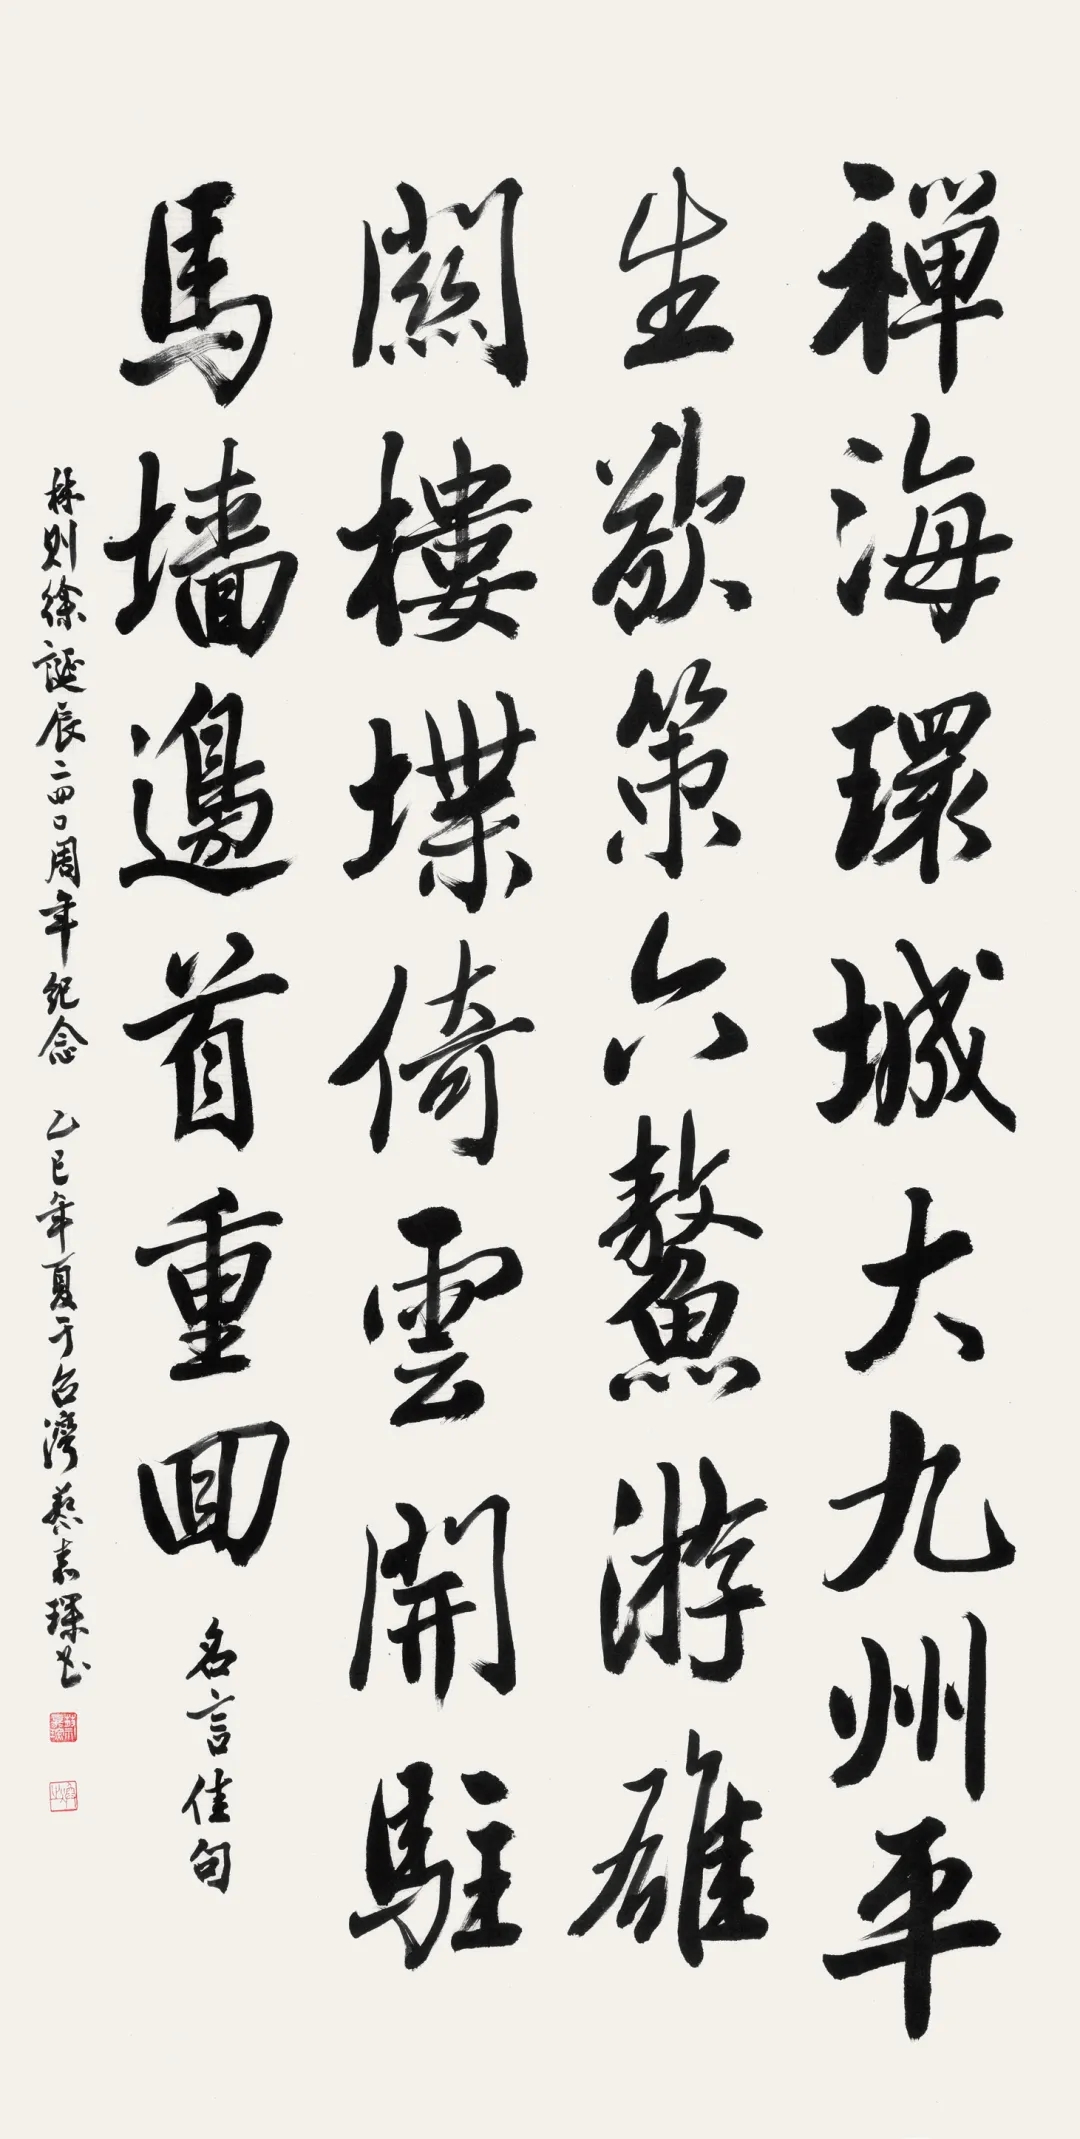 禪海環城大九州平
生欲策六鰲游雄
關樓堞倚雲開駐
馬墙邊首重回
名言佳句
林则徐誕辰二四〇周年紀念 乙巳年夏于台灣 蔡志琛书